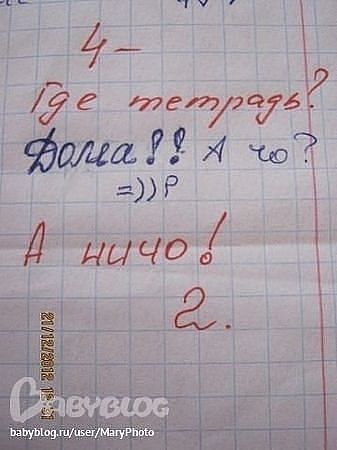 4-
Где тетрадь?
Дома!! А чо?
=))Р
А ничо!
2.
21/12/2012
BABYBLOG
babyblog.ru/user/MaryPhoto